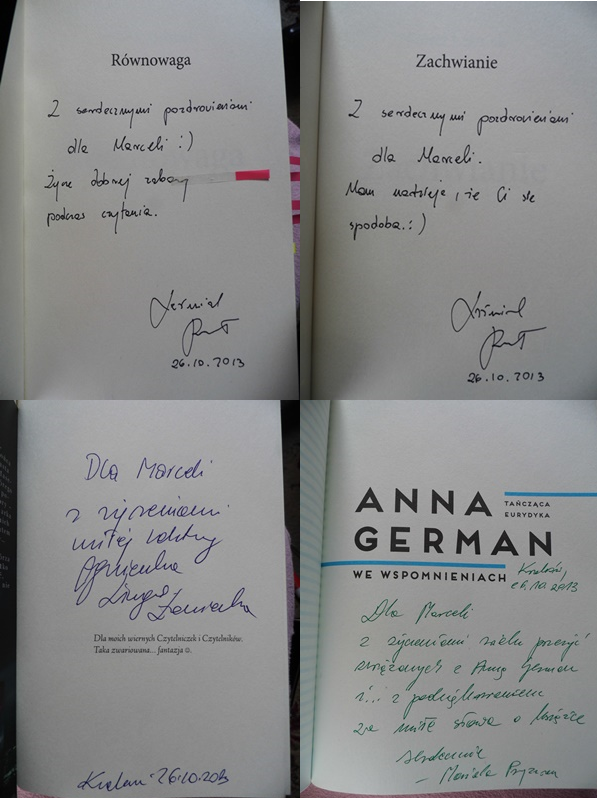 Równowaga
Z serdecznymi pozdrowieniami
dla Marceli :)
Życzę dobrej zabawy
podczas czytania.
26.10.2013
Zachwianie
Z serdecznymi pozdrowieniami
dla Marceli.
Mam nadzieję, że Ci się
spodoba. :)
26.10.2013
Dla Marceli
z życzeniami
miłej lektury
Agnieszka
Lingas
Dla moich wiernych Czytelniczek i Czytelników.
Taka zwariowana... fantazja ☺.
Kraków 26.10.2013
ANNA
TAŃCZĄCA
EURYDYKA
GERMAN
WE WSPOMNIENIACH
Kraków,
26.10.2013
Dla Marceli
z życzeniami wielu przeżyć
związanych z Anną German
i... z podziękowaniem
za miłe słowa o książce
Serdecznie
– Mariola Pryzwan